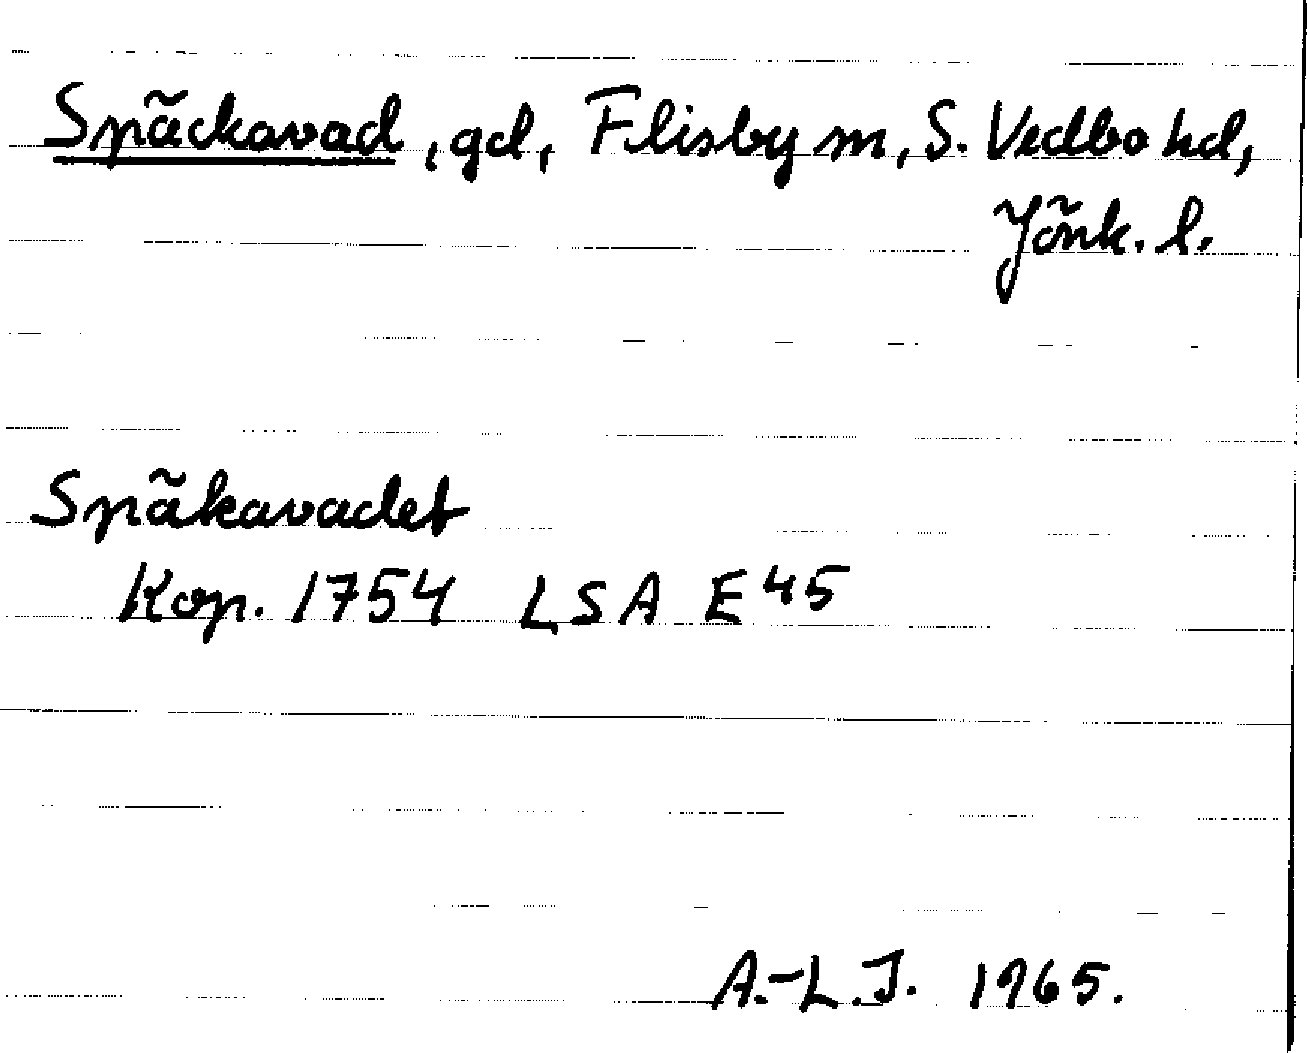 Späckavad, gd, Flisby sn, S. Vedbo hd,
Jönk. l.
Späkavadet
Kop. 1754 LSA E45
A.-L.J. 1965.